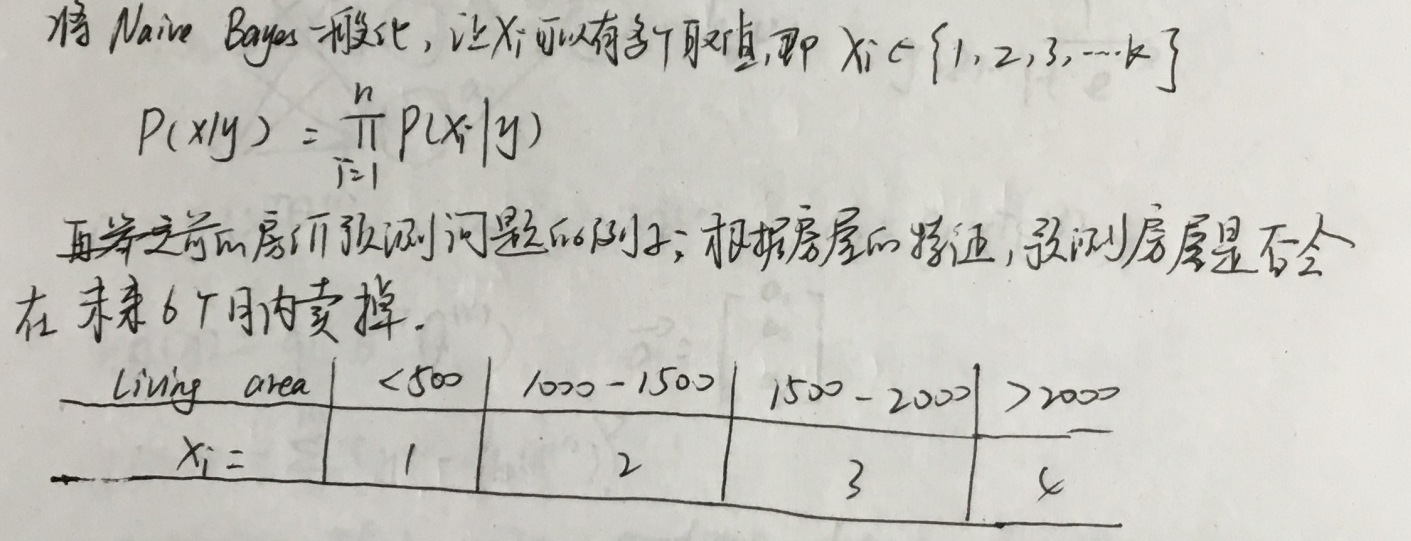 将 Naive Bayes 一般化, 让 Xi 可以有多个取值, 即 Xi ∈ {1, 2, 3, ...k}
P(x|y) = ∏_{i=1}^{n} P(Xi|y)
再举之前的房价预测问题的例子; 根据房屋的特征, 预测房屋是否会
在未来6个月内卖掉.
Living area | <500 | 1000-1500 | 1500-2000 | >2000
Xi = | 1 | 2 | 3 | 4